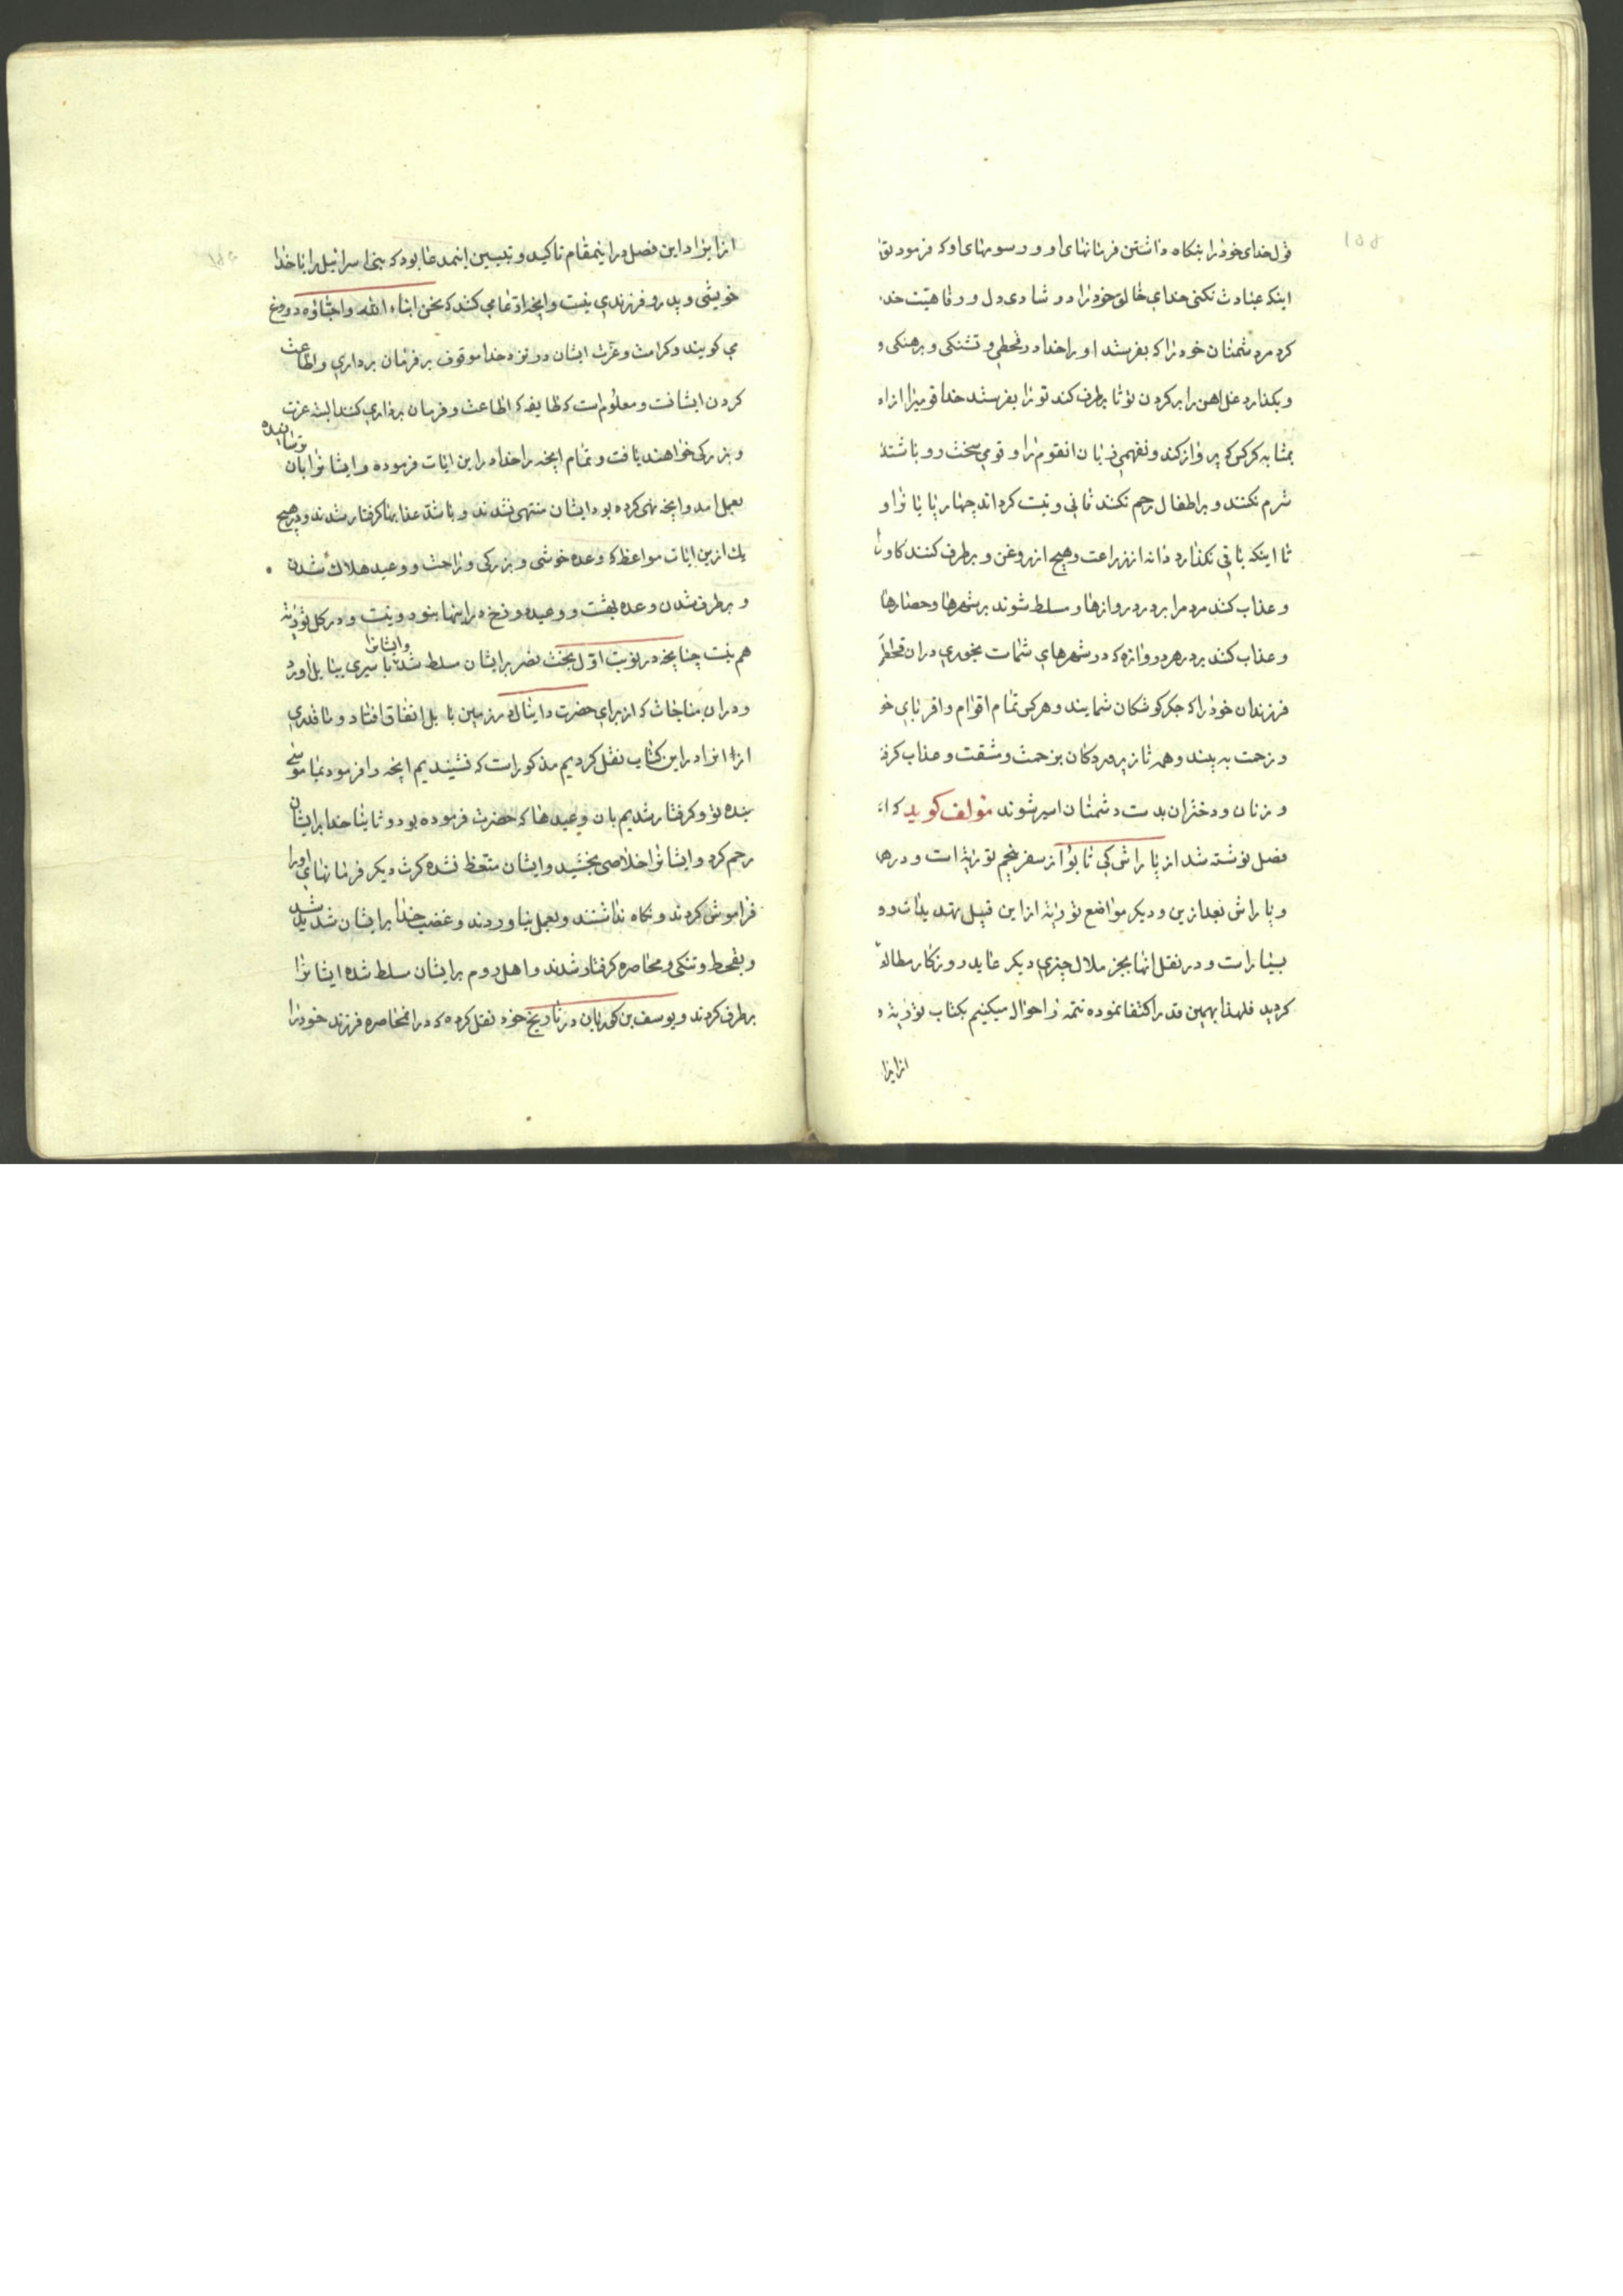 ۱۵۵
قول خدای خود را بنکاه داشتن فرمانهای او و رسومهای او که فرمود
اینکه عبادت نکنی خدای خالق خود را در شادی دل و رفاهیت
کرد مر دشمنان خود را که بفرستد او را خدا در قحطی و تشنکی و برهنکی و
و بکذارد غل اهن را بر کردن تو تا برطرف کند تو را بفرستد خدا قومیرا از
بمثابه کرکس که پرواز کند و نفهمی زبان انقوم را و قومی سخت رو باشند
شرم نکنند و بر اطفال رحم نکنند ثانی و نیت کرداند چهارپایا نرا و
تا اینکه باقی نکذارد دانه از زراعت و هیچ از روغن و برطرف کنند کاو
و عذاب کند مردم را بر در دروازها و مسلط شوند بر شهرها و حصارها
و عذاب کنند بر در هر دروازه که در شهرهای شمات بخوری در ان
فرزندان خود را که جکر کوشکان شمایند و هر کس تمام اقوام و اقربای
و زحمت به بیند و همه نازپروردکان بزحمت و مشقت و عذاب
و زنان و دختران بدست دشمنان اسیر شوند مؤلف کوید که
فصل نوشته شد از پاراش کی تابوا از سفر پنجم توریة است و در
و پاراش بعد ازین و دیکر مواضع توریة از این قبیل تهدیدات
بسیار است و در نقل انها بجز ملال چیزی دیکر عاید روزکار
کردید فلهذا بهمین قدر اکتفا نموده تتمه را احوال میکنیم بکتاب توریة
از ایرا
از ایراد این فصل در اینمقام تاکید و تبیین اینمدعا بود که بنی اسرائیل را با خدا
خویشی و پدر و فرزندی نیست و انچه ادعا می کنند که نحن ابناء الله و احباؤه دروغ
می کویند و کرامت و عزت ایشان در نزد خدا موقوف بر فرمان برداری و اطاعت
کردن ایشانست و معلوم است که طایفه که اطاعت و فرمان برداری کنند البته عزت
و بزرکی خواهند یافت و تمام انچه را خدا در این ایات فرموده و ایشانرا بان ترسانیده
بعمل امد و انچه نهی کرده بود ایشان منتهی نشدند و باشد عذابها کرفتار شدند و در هیچ
یك از ین ایات مواعظ که وعده خوشی و بزرکی و راحت و وعید هلاك شدن
و برطرف شدن وعده بهشت و وعید دوزخ در اینها نبود و نیست و در کل توریة
هم نیست چنانچه در نوبت اول بخت نصر بر ایشان مسلط شد و ایشانرا باسیری ببابل اورد
و در ان مناجات که از برای حضرت دانیال در زمین بابل اتفاق افتاد و ما قدری
از انرا در این کتاب نقل کردیم مذکور است که نشنیدیم انچه را فرمود بما موسی
بنده تو و کرفتار شدیم بان وعیدها که حضرت فرموده بود و ثانیا خدا بر ایشان
رحم کرد و ایشانرا خلاصی بخشید و ایشان متعظ نشده کرت دیکر فرمانهای او را
فراموش کردند و نکاه نداشتند و بعمل نیاوردند و غضب خدا بر ایشان شدید شد
و بقحط و تنکی و محاصره کرفتار شدند و اهل روم بر ایشان مسلط شده ایشانرا
برطرف کردند و یوسف بن کوریان در تاریخ خود نقل کرده که در انمحاصره فرزند خود را